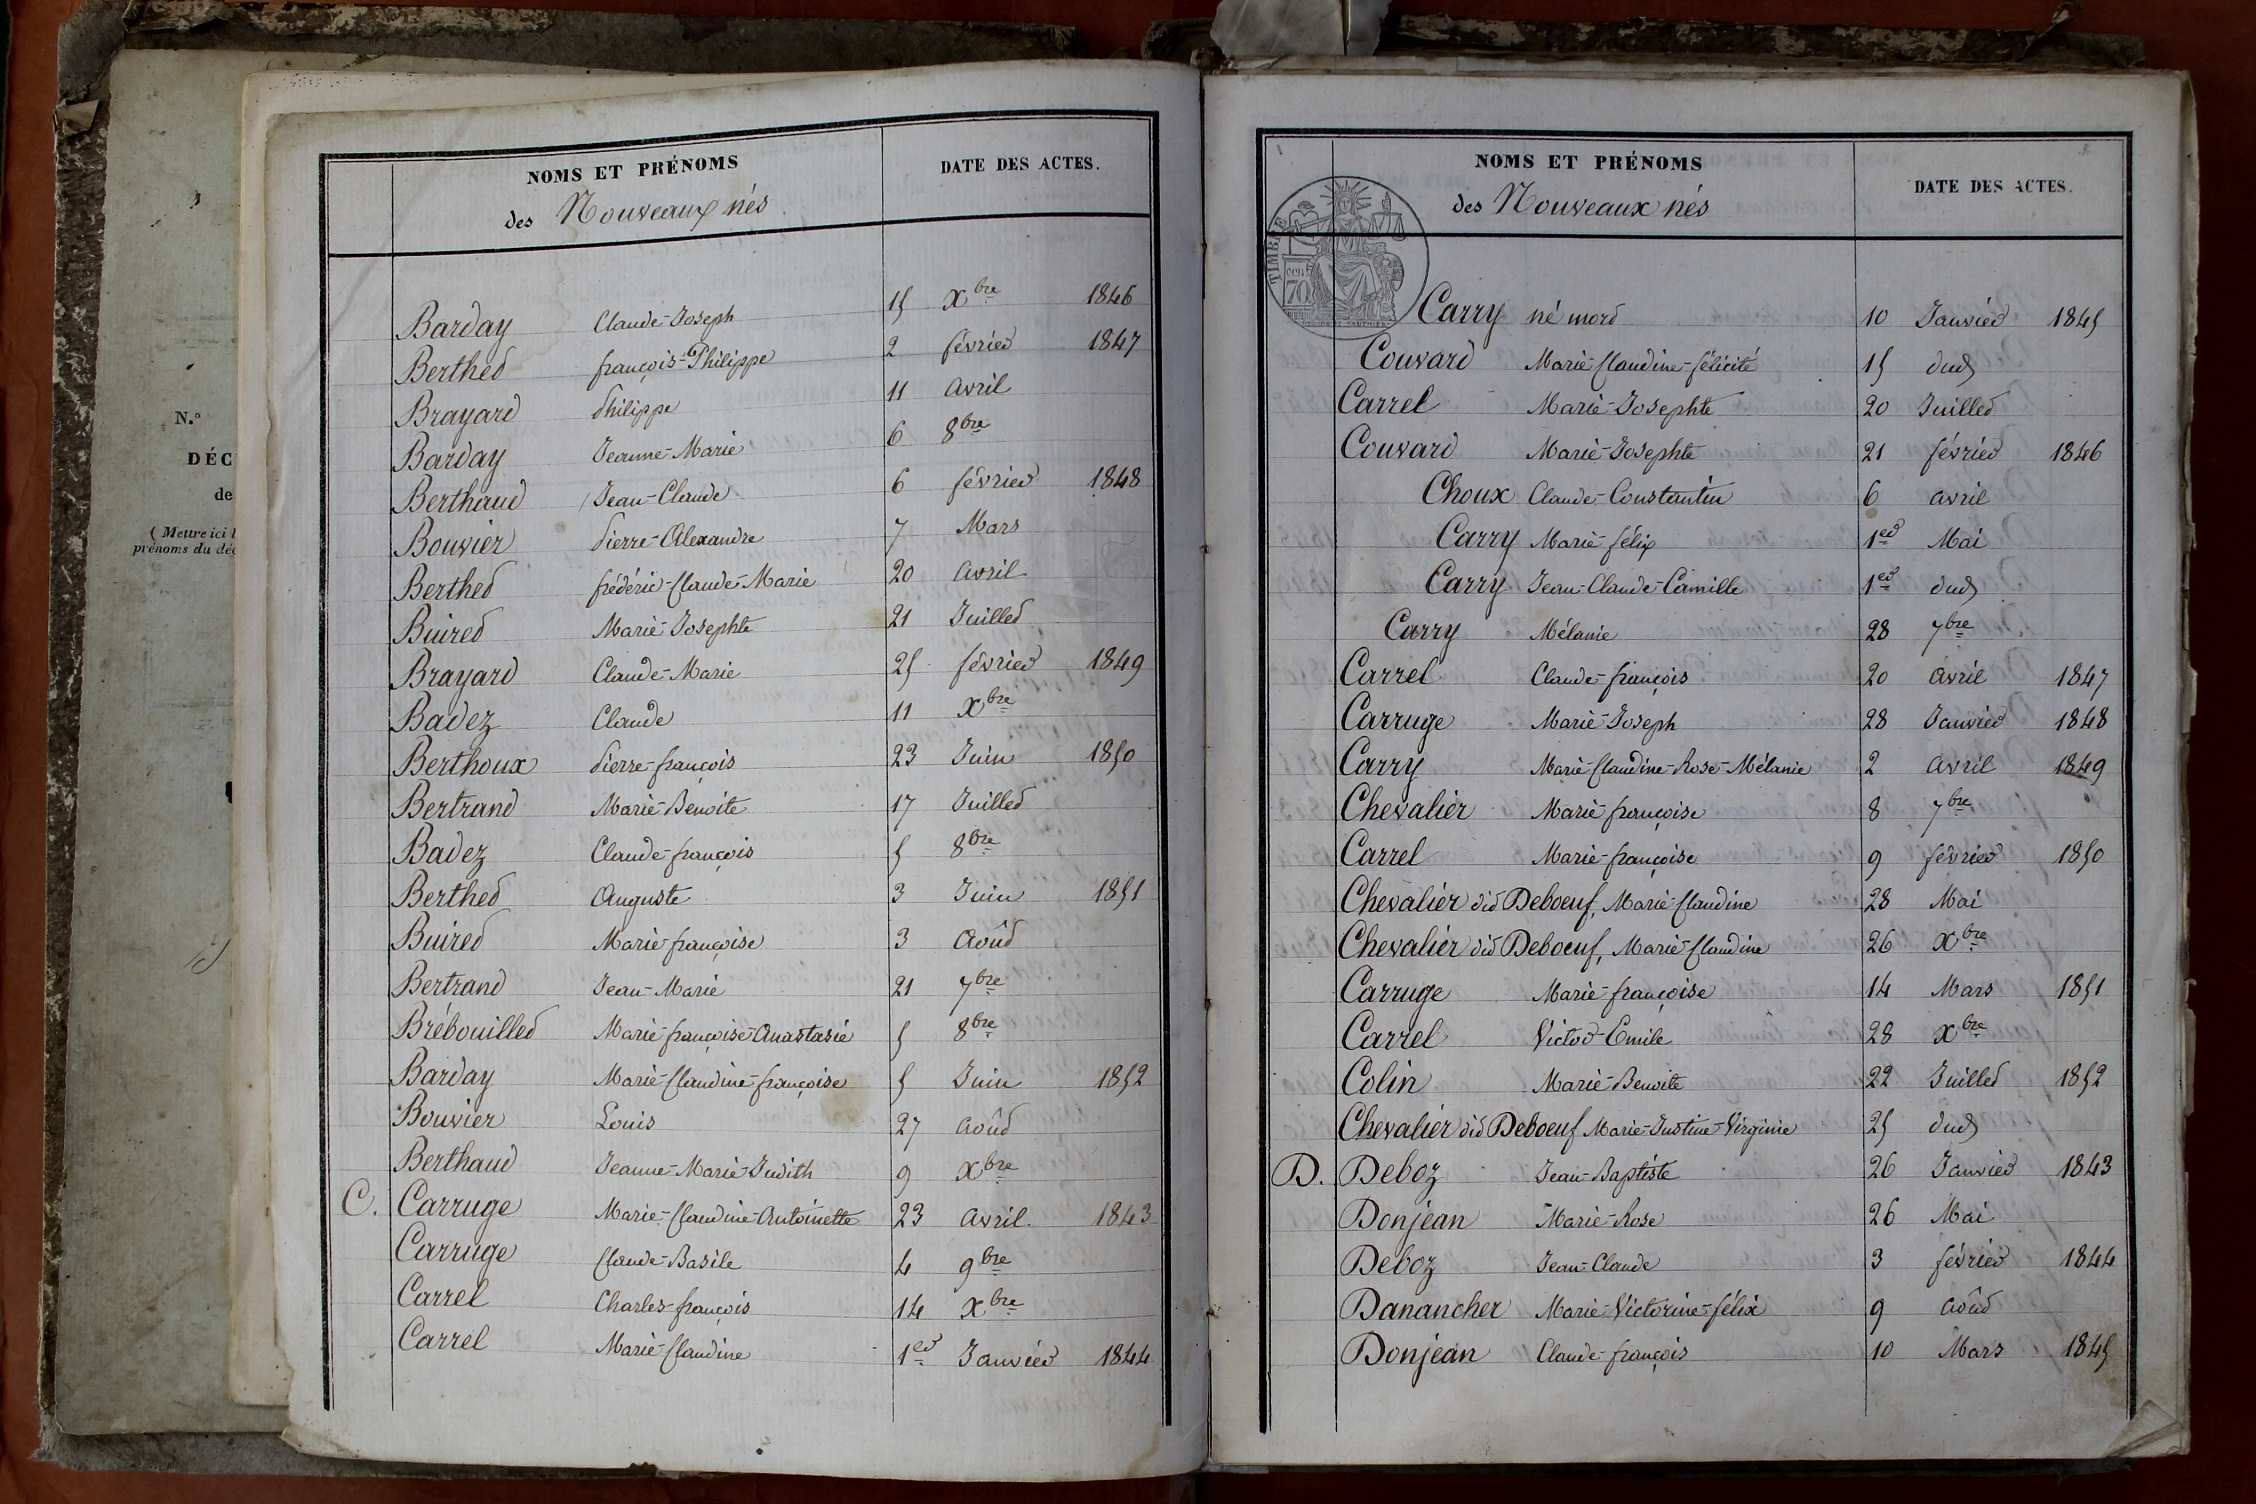 N.o
DÉC
de
( Mettre ici l
prénoms du déc
NOMS ET PRÉNOMS
des Nouveaux nés
DATE DES ACTES.
Barday Claude-Joseph 15 Xbre 1846
Berthet françois-Philippe 2 février 1847
Brayard Philippe 11 avril
Barday Jeanne-Marie 6 8bre
Berthaud Jean-Claude 6 février 1848
Bouvier Pierre-Alexandre 7 Mars
Berthet frédéric-Claude-Marie 20 avril
Buiret Marie-Josephte 21 Juillet
Brayard Claude-Marie 25 février 1849
Badez Claude 11 Xbre
Berthoux Pierre-françois 23 Juin 1850
Bertrand Marie-Benoite 17 Juillet
Badez Claude-françois 5 8bre
Berthet Auguste 3 Juin 1851
Buiret Marie-françoise 3 Août
Bertrand Jean-Marie 21 7bre
Brébouillet Marie-françoise-Anastasie 5 8bre
Barday Marie-Claudine-françoise 5 Juin 1852
Bouvier Louis 27 août
Berthaud Jeanne-Marie-Judith 9 Xbre
C. Carruge Marie-Claudine-Antoinette 23 avril 1843
Carruge Claude-Basile 4 9bre
Carrel Charles-françois 14 Xbre
Carrel Marie-Claudine 1er Janvier 1844
NOMS ET PRÉNOMS
des Nouveaux nés
DATE DES ACTES.
TIMBRE
70
Carry né mort 10 Janvier 1845
Couvard Marie-Claudine-félicité 15 dud
Carrel Marie-Josephte 20 Juillet
Couvard Marie-Josephte 21 février 1846
Choux Claude-Constantin 6 avril
Carry Marie-félix 1er Mai
Carry Jean-Claude-Camille 1er dud
Carry Mélanie 28 7bre
Carrel Claude-françois 20 avril 1847
Carruge Marie-Joseph 28 Janvier 1848
Carry Marie-Claudine-Rose-Mélanie 2 avril 1849
Chevalier Marie-françoise 8 7bre
Carrel Marie-françoise 9 février 1850
Chevalier dit Deboeuf, Marie-Claudine 28 Mai
Chevalier dit Deboeuf, Marie-Claudine 26 Xbre
Carruge Marie-françoise 14 Mars 1851
Carrel Victor-Emile 28 Xbre
Colin Marie-Benoite 22 Juillet 1852
Chevalier dit Deboeuf Marie-Justine-Virginie 25 dud
D. Deboz Jean-Baptiste 26 Janvier 1843
Donjean Marie-Rose 26 Mai
Deboz Jean-Claude 3 février 1844
Danancher Marie-Victorine-félix 9 août
Donjean Claude-françois 10 Mars 1845